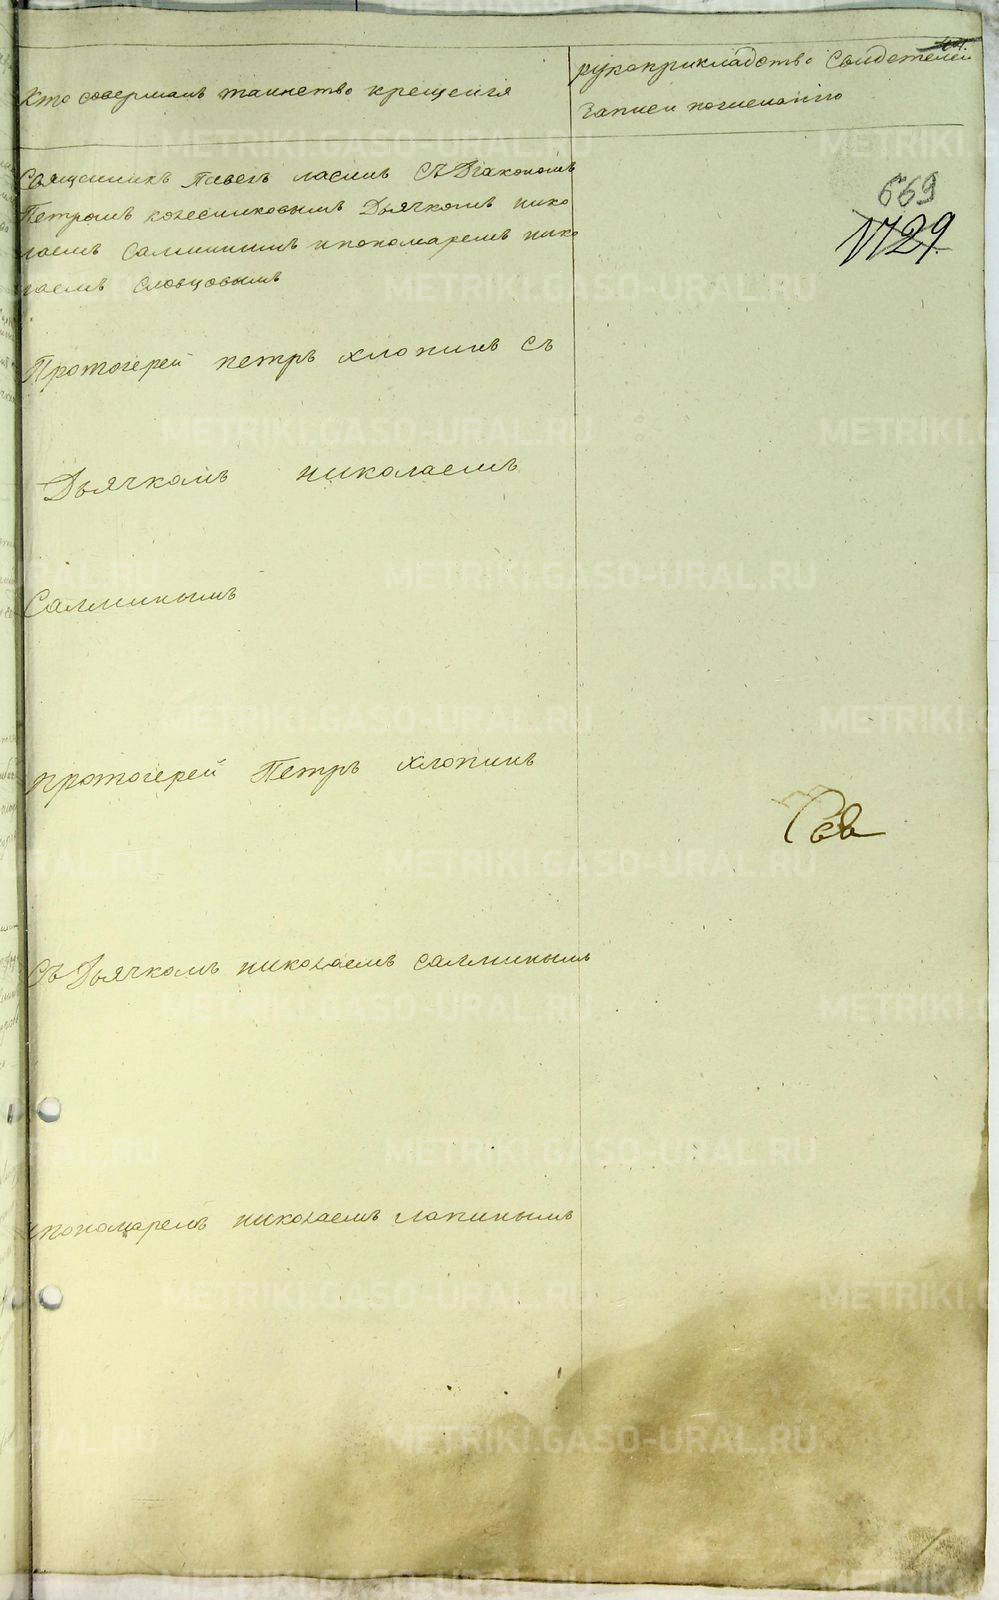 Кто совершалъ таинство крещенiя
рукоприкладство свидетелей
записи по желанiю
669
1729
Священникъ Павелъ с Дiакономъ
Петромъ колесниковымъ Дьячкомъ нико
лаемъ Салминымъ и пономаремъ нико
лаемъ Словцовымъ
Протоiерей петръ хлопинъ съ
Дьячкомъ николаемъ
Салминымъ
протоiерей Петръ хлопинъ
съ Дьячкомъ николаемъ салминымъ
ипономаремъ николаемъ лапинымъ
METRIKI.GASO-URAL.RU